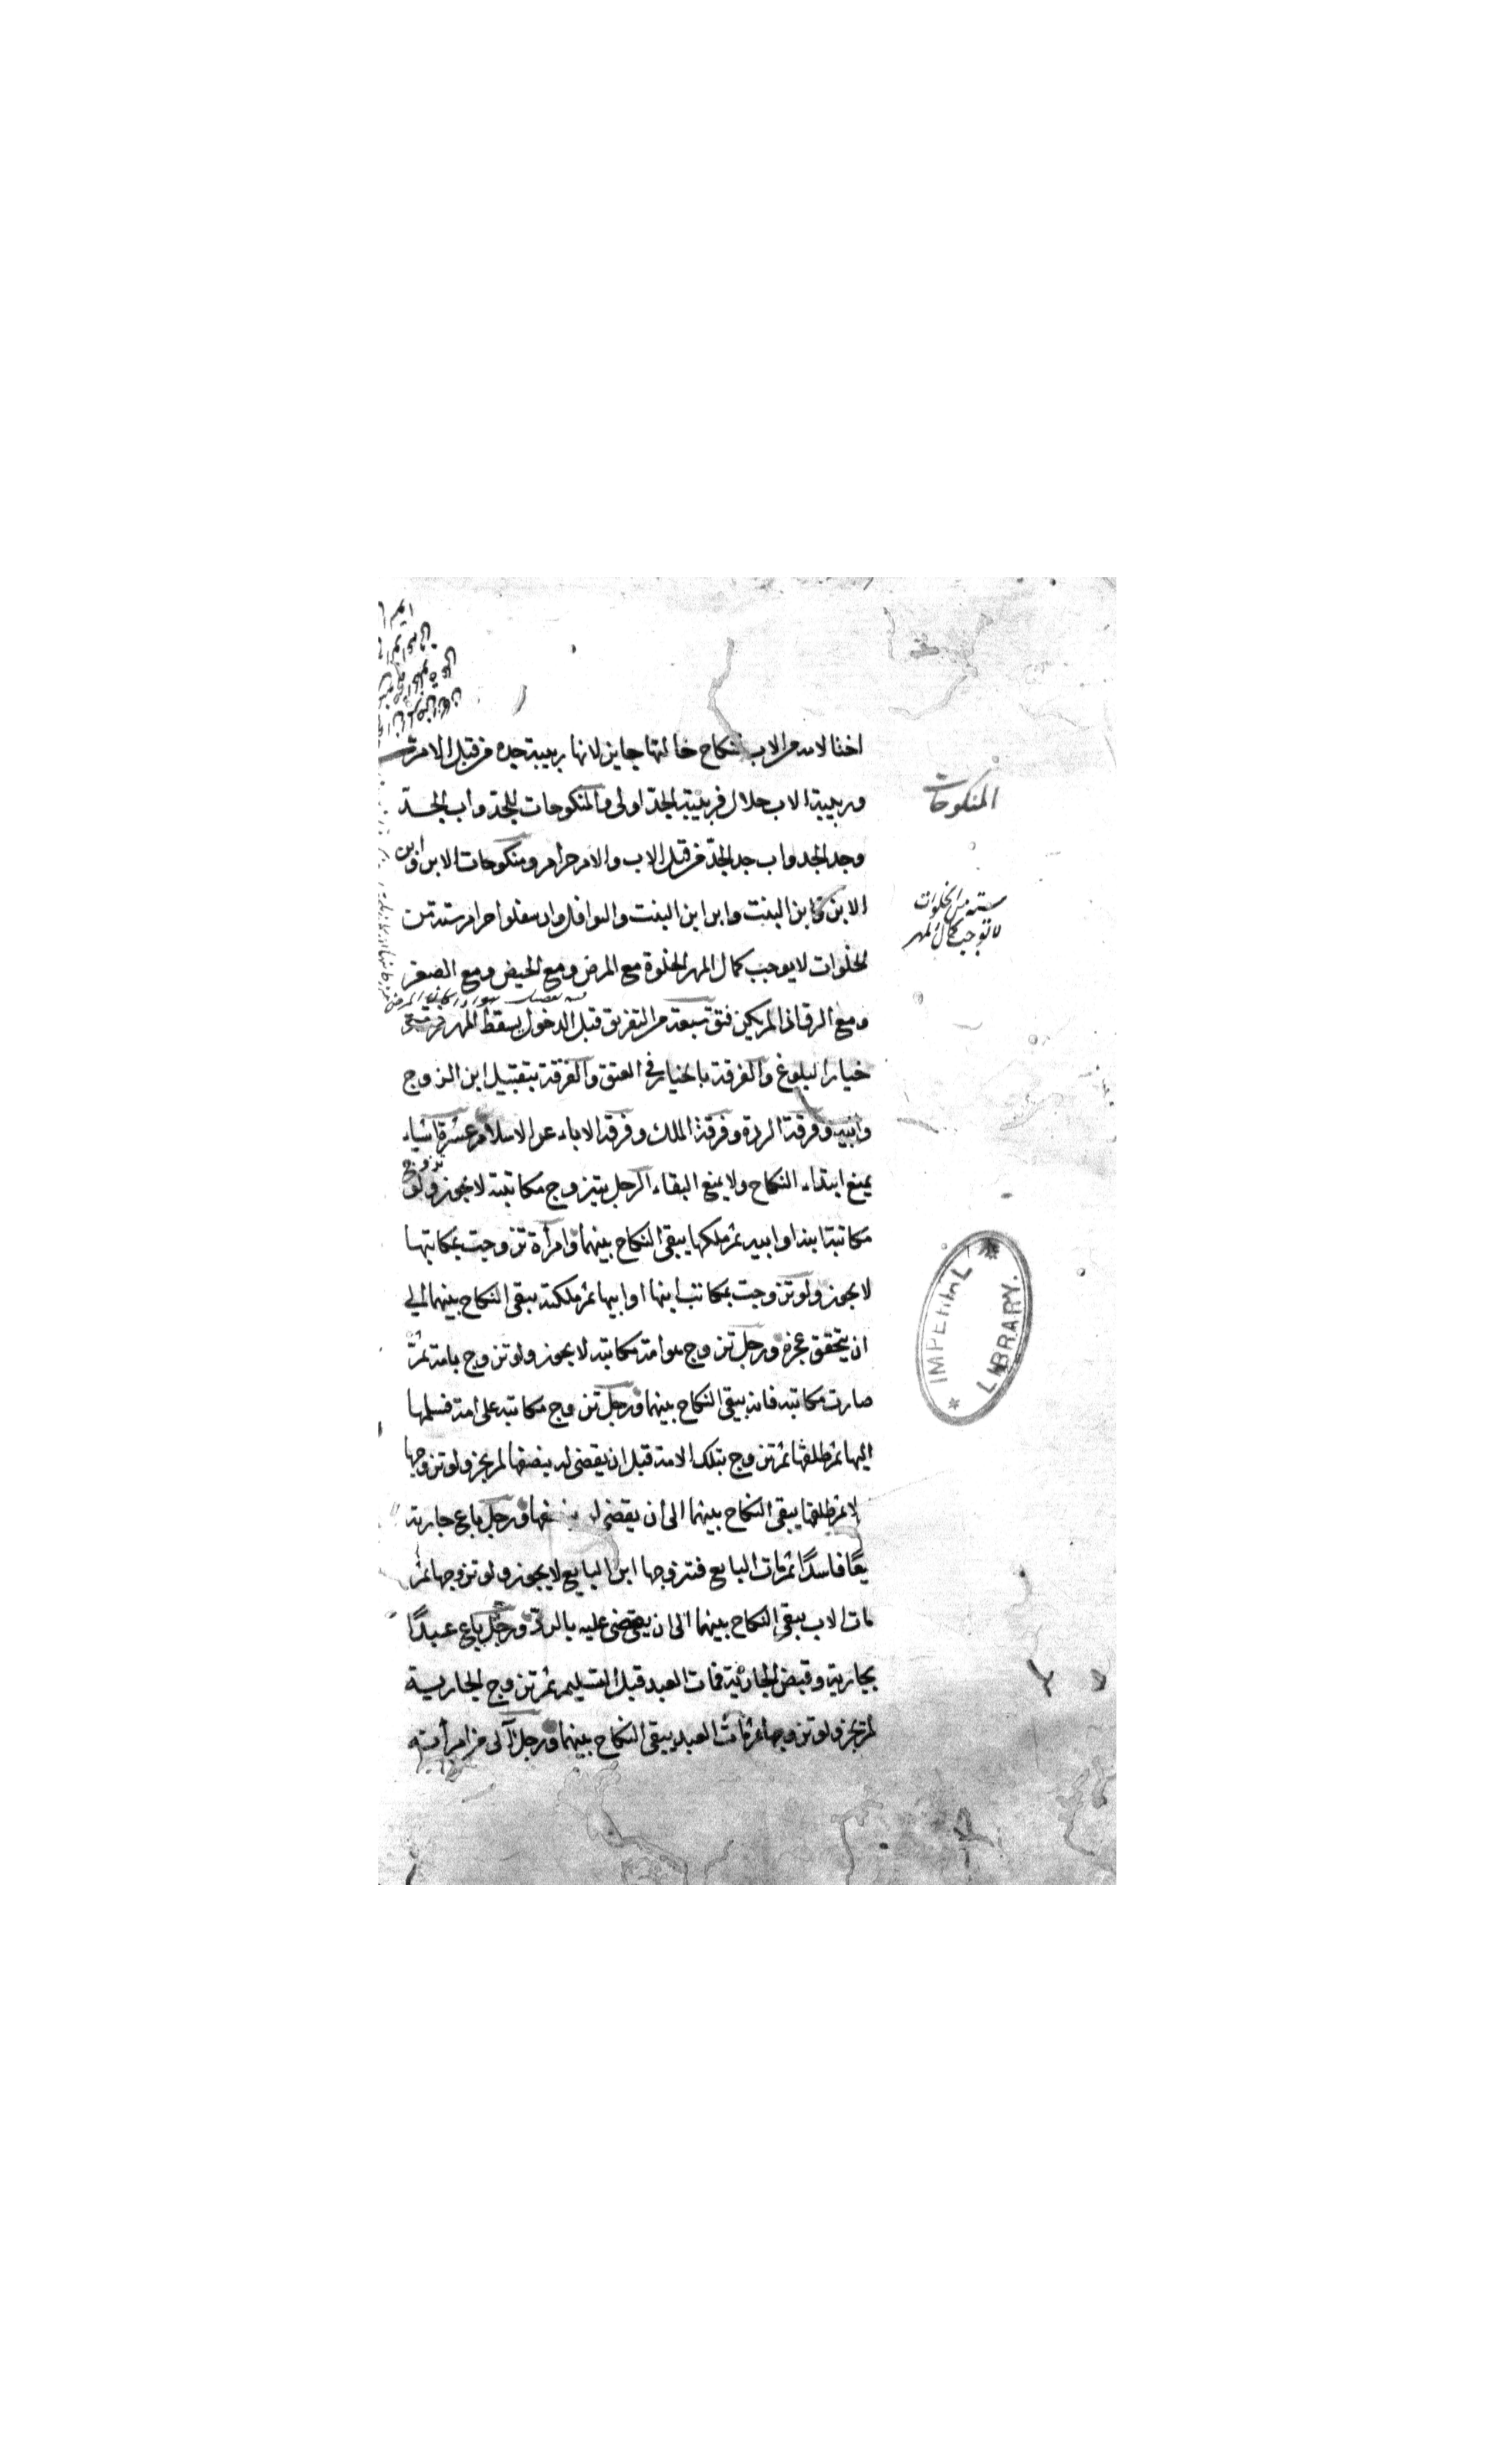 اختا لامه من الاب نكاح خالتها جايز لانها ربيبة جده من قبل الام
وربيبة الاب حلال فربيبة الجد اولى والمنكوحات للجد واب الجد
وجد الجد واب جد الجد من قبل الاب والام حرام ومنكوحات الابن وابن
الابن وابن البنت وابن ابن البنت والنوافل وان سفلوا حرام ستة من
الخلوات لا يوجب كمال المهر الخلوة مع المرض ومع الحيض ومع الصغر
ومع الرتق سبعة من التفريق قبل الدخول يسقط المهر
خيار البلوغ والفرقة بالخيار في العتق والفرقة بتقبيل ابن الزوج
وابيه وفرقة الردة وفرقة الملك وفرقة الاباء عن الاسلام عشرة اشياء
يمنع ابتداء النكاح ولا يمنع البقاء الرجل يتزوج مكاتبته لا يجوز ولو تزوج
مكاتبة ابنه او ابيه ثم ملكها يبقى النكاح بينهما وامرأة تزوجت بمكاتبها
لا يجوز ولو تزوجت بمكاتب ابنها او ابيها ثم ملكته يبقى النكاح بينهما الى
ان يتحقق عجزه ورجل تزوج امة مكاتبه لا يجوز ولو تزوج بامة ثم
صارت مكاتبه فانه يبقى النكاح بينهما ورجل تزوج مكاتبه على امة فسلمها
اليها ثم طلقها ثم تزوج بتلك الامة قبل ان يقضى له بنصفها لم يجز ولو تزوجها
ثم طلقها يبقى النكاح بينهما الى ان يقضى له بنصفها ورجل باع جارية
بيعًا فاسدًا ثم مات البايع فتزوجها ابن البايع لا يجوز ولو تزوجها ثم
مات الاب يبقى النكاح بينهما الى ان يقضى عليه بالرد ورجل باع عبدًا
بجارية وقبض الجارية فمات العبد قبل التسليم ثم تزوج الجارية
لم يجز ولو تزوجها ثم مات العبد يبقى النكاح بينهما ورجل آلى من امرأته
المنكوحات
ستة من الخلوات
لا توجب كمال المهر
IMPERIAL
LIBRARY.